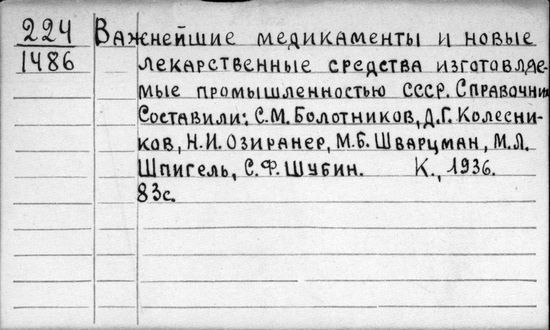 224 Важнейшие медикаменты и новые
1486 лекарственные средства изготавляе-
мые промышленностью СССР. Справочник
Составили: С.М. Болотников, Д.Г. Колесни-
ков, Н.И. Озиранер, М.Б. Шварцман, М.Л.
Шпигель, С.Ф. Шубин. К., 1936.
83с.